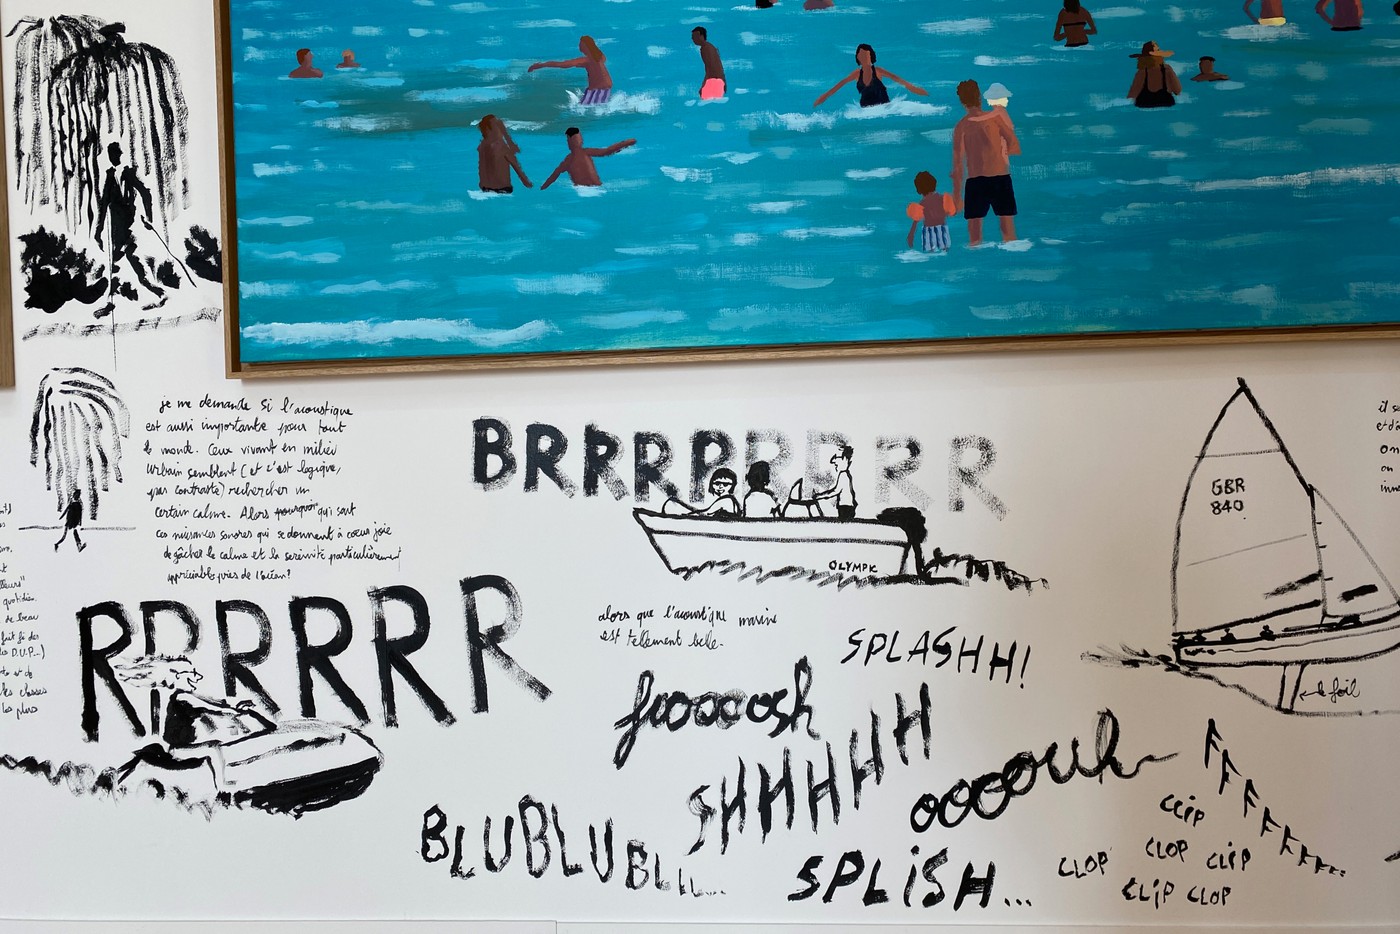 je me demande si l'acoustique
est aussi importante pour tout
le monde. Ceux vivant en milieu
urbain semblent (et c'est logique,
par contraste) rechercher un
certain calme. Alors pourquoi qui sont
ces nuisances sonores qui se donnent à coeur joie
de gâcher le calme et la sérénité particulièrement
appréciables près de l'océan?
BRRRRRRRR
OLYMPIC
alors que l'acoustique marine
est tellement belle.
RRRRRR
SPLASHH!
frooooosh
SHHHHHH
ooooouh
BLUBLUBLLL...
SPLISH...
FFFFFFFF...
CLIP
CLOP
CLOP
CLIP
CLIP CLOP
GBR
840
le foil
il s
et d'a
on
on
inn
quotidie.
de beau
fait fi des
D.U.P...)
et de
les classes
les plus